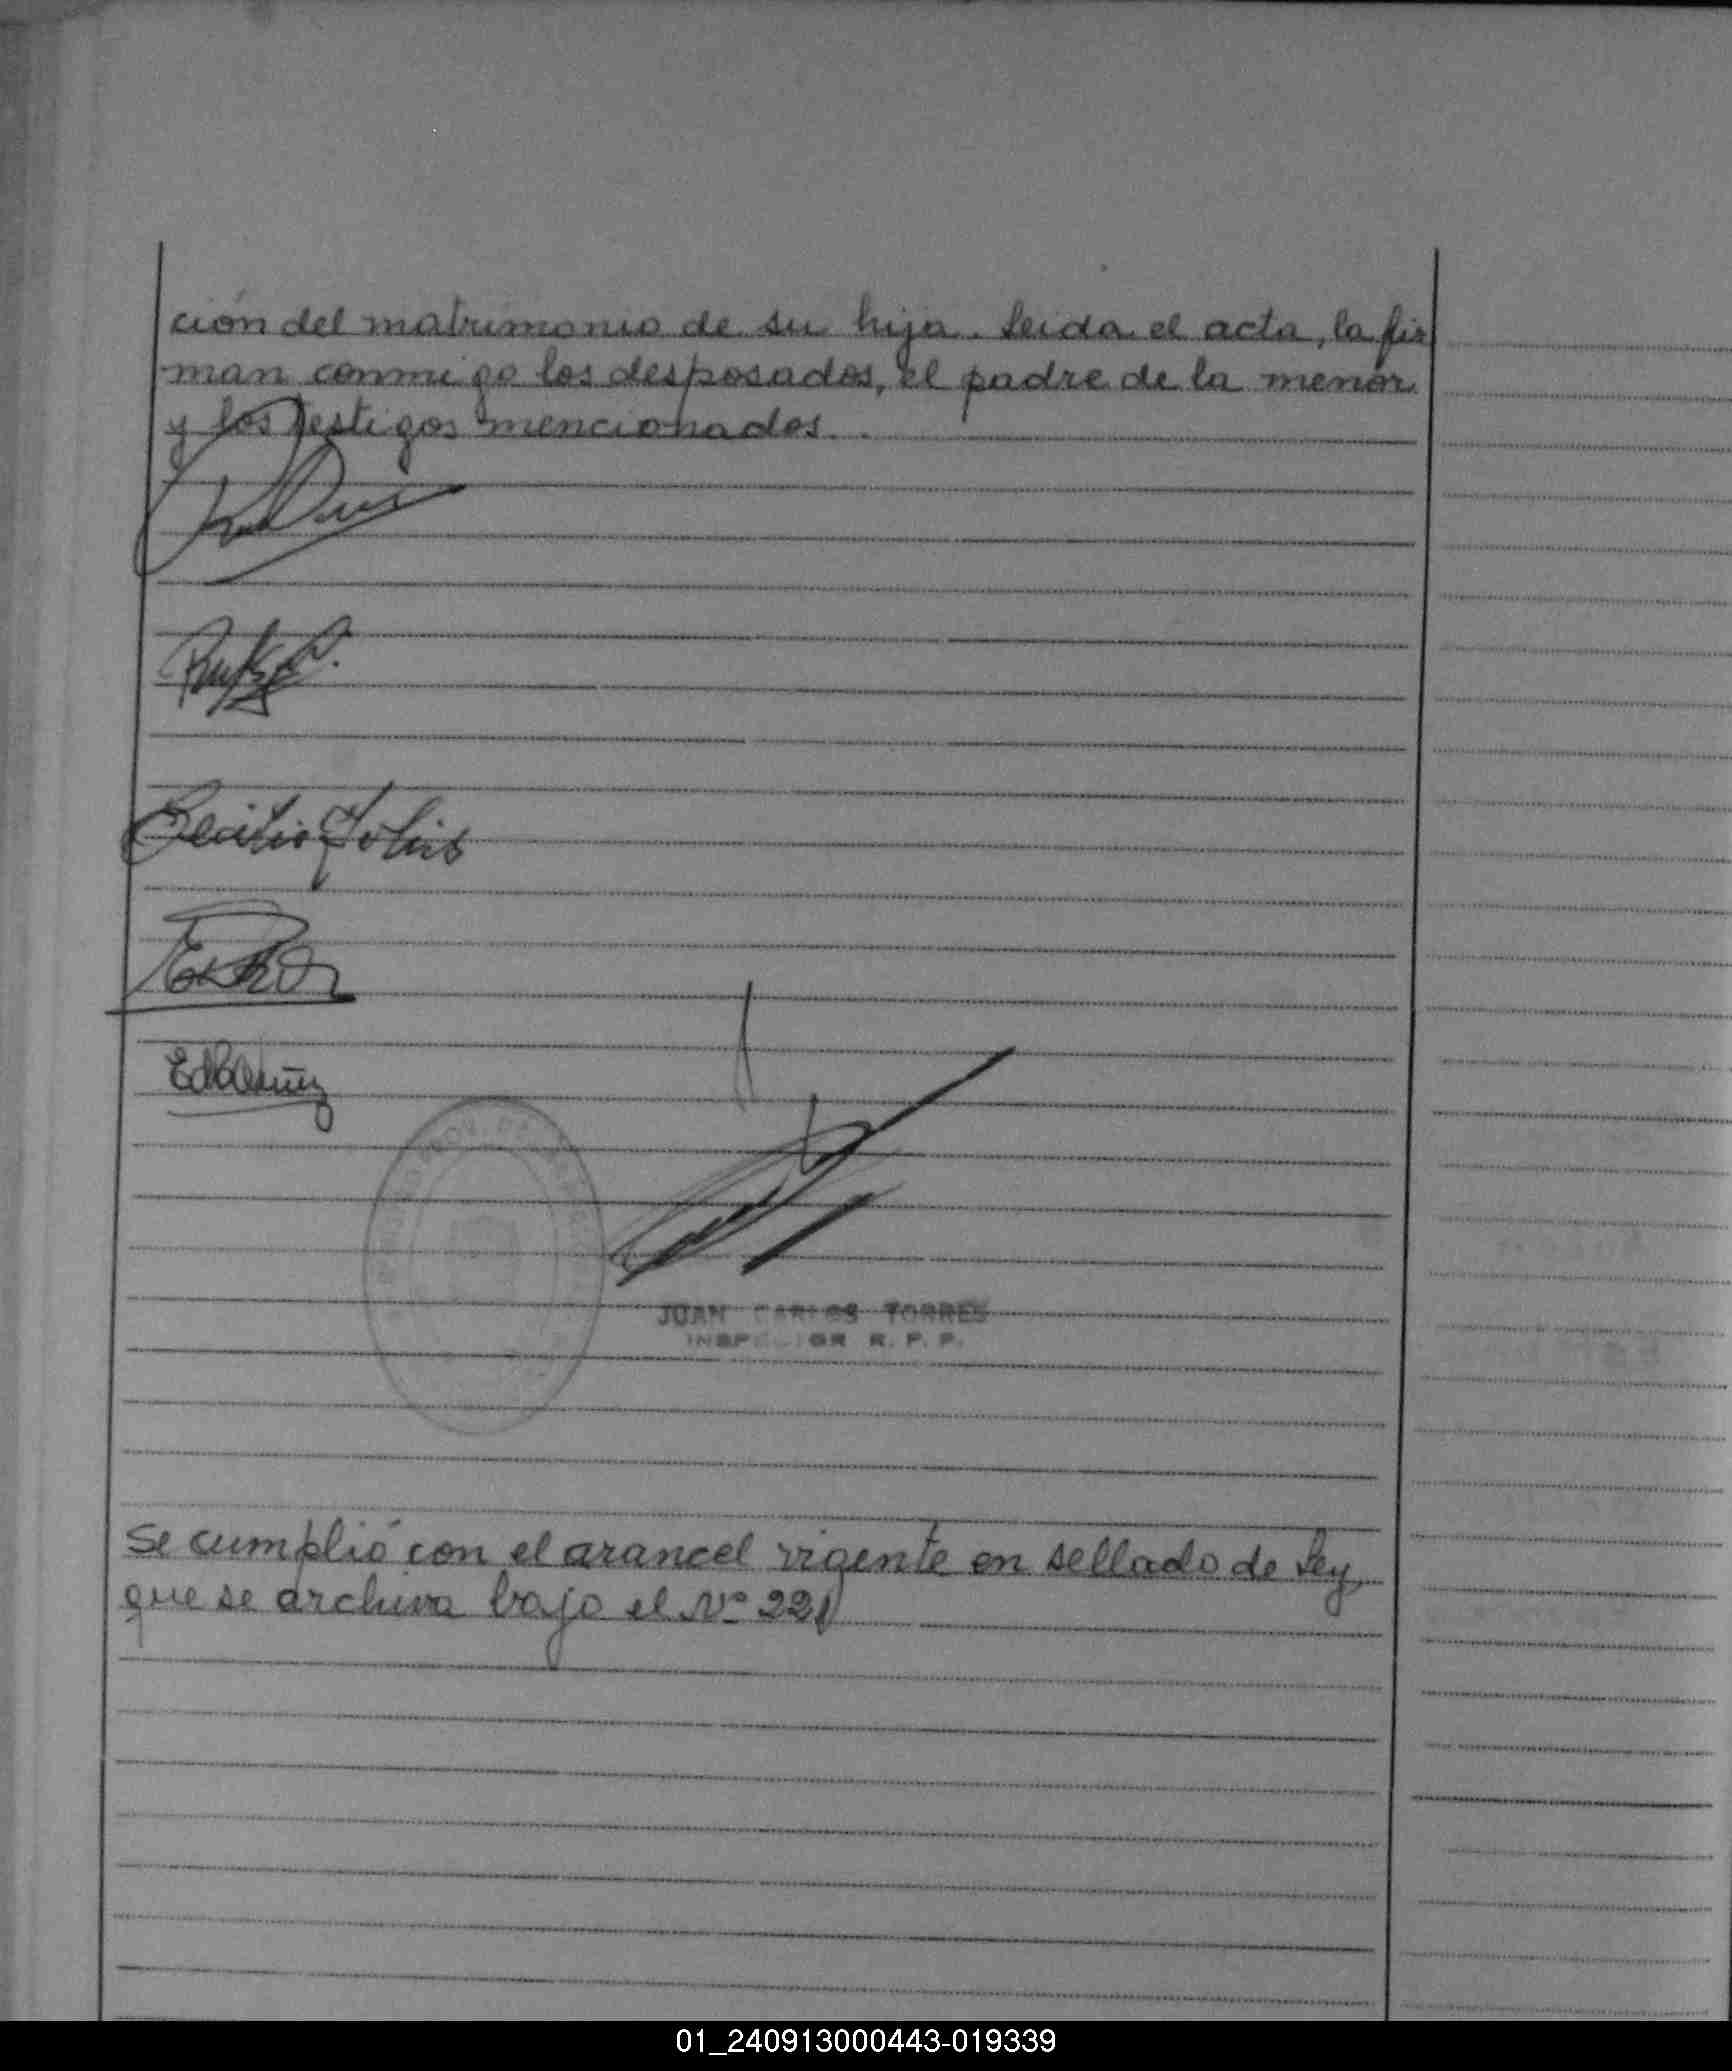 ción del matrimonio de su hija. Leida el acta, la fir
man conmigo los desposados, el padre de la menor
y los testigos mencionados..
JUAN CARLOS TORRES
INSPECTOR R. P. P.
Se cumplió con el arancel vigente en sellado de Ley,
que se archiva bajo el Nº 221
01_240913000443-019339